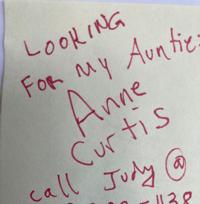 LOOKING
FOR my Auntie:
Anne
Curtis
call Judy @